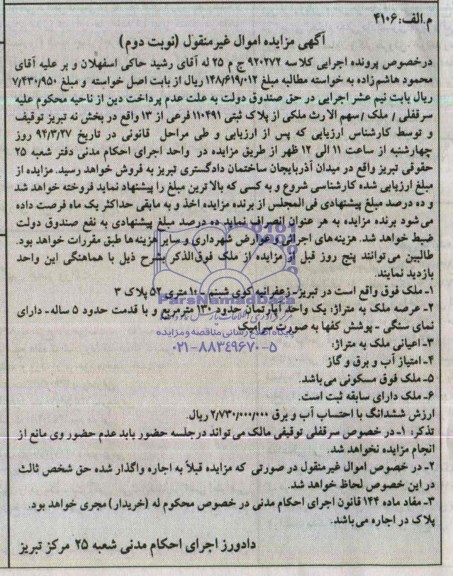 م.الف:۴۱۰۶
آگهی مزایده اموال غیرمنقول (نوبت دوم)
درخصوص پرونده اجرایی کلاسه ۹۲۰۲۷۲ ج م ۲۵ له آقای رشید حاکی اسفهلان و بر علیه آقای
محمود هاشم‌زاده به خواسته مطالبه مبلغ ۱۴۸/۶۱۹/۰۱۲ ریال از بابت اصل خواسته و مبلغ ۷/۴۳۰/۹۵۰
ریال بابت نیم عشر اجرایی در حق صندوق دولت به علت عدم پرداخت دین از ناحیه محکوم علیه
سرقفلی / ملک / سهم الارث ملکی از پلاک ثبتی ۱۱۰۴۹۱ فرعی از ۱۳ واقع در بخش نه تبریز توقیف
و توسط کارشناس ارزیابی که پس از ارزیابی و طی مراحل قانونی در تاریخ ۹۴/۳/۲۷ روز
چهارشنبه از ساعت ۱۱ الی ۱۲ ظهر از طریق مزایده در واحد اجرای احکام مدنی دفتر شعبه ۲۵
حقوقی تبریز واقع در میدان آذربایجان ساختمان دادگستری تبریز به فروش خواهد رسید. مزایده از
مبلغ ارزیابی شده کارشناسی شروع و به کسی که بالاترین مبلغ را پیشنهاد نماید فروخته خواهد شد
و ده درصد مبلغ پیشنهادی فی المجلس از برنده مزایده اخذ و به مابقی حداکثر یک ماه فرصت داده
می‌شود برنده مزایده به هر عنوان انصراف نماید ده درصد مبلغ پیشنهادی به نفع صندوق دولت
ضبط خواهد شد. هزینه‌های اجرائی و عوارض شهرداری و سایر هزینه‌ها طبق مقررات خواهد بود.
طالبین می‌توانند پنج روز قبل از مزایده از ملک فوق‌الذکر بشرح ذیل با هماهنگی این واحد
بازدید نمایند.
۱- ملک فوق واقع است در تبریز-زعفرانیه کوی شبنم ۱۰ متری ۵۲ پلاک ۳
۲- عرصه ملک به متراژ: یک واحد آپارتمان حدود ۱۳۰ مترمربع و با قدمت حدود ۵ ساله- دارای
نمای سنگی - پوشش کفها به صورت سرامیک
۳- اعیانی ملک به متراژ:
۴- امتیاز آب و برق و گاز
۵- ملک فوق مسکونی می‌باشد.
۶- ملک دارای سابقه ثبت است.
ارزش ششدانگ با احتساب آب و برق ۲/۷۳۰/۰۰۰/۰۰۰ ریال.
تذکر: ۱- در خصوص سرقفلی توقیفی مالک می‌تواند درجلسه حضور یابد عدم حضور وی مانع از
انجام مزایده نخواهد شد.
۲- در خصوص اموال غیرمنقول در صورتی که مزایده قبلاً به اجاره واگذار شده حق شخص ثالث
در این خصوص لحاظ خواهد شد.
۳- مفاد ماده ۱۴۴ قانون اجرای احکام مدنی در خصوص محکوم له (خریدار) مجری خواهد بود.
پلاک در اجاره می‌باشد.
دادورز اجرای احکام مدنی شعبه ۲۵ مرکز تبریز
ParsNamadData
پایگاه اطلاع رسانی مناقصه و مزایده
۰۲۱-۸۸۳۴۹۶۷۰-۵